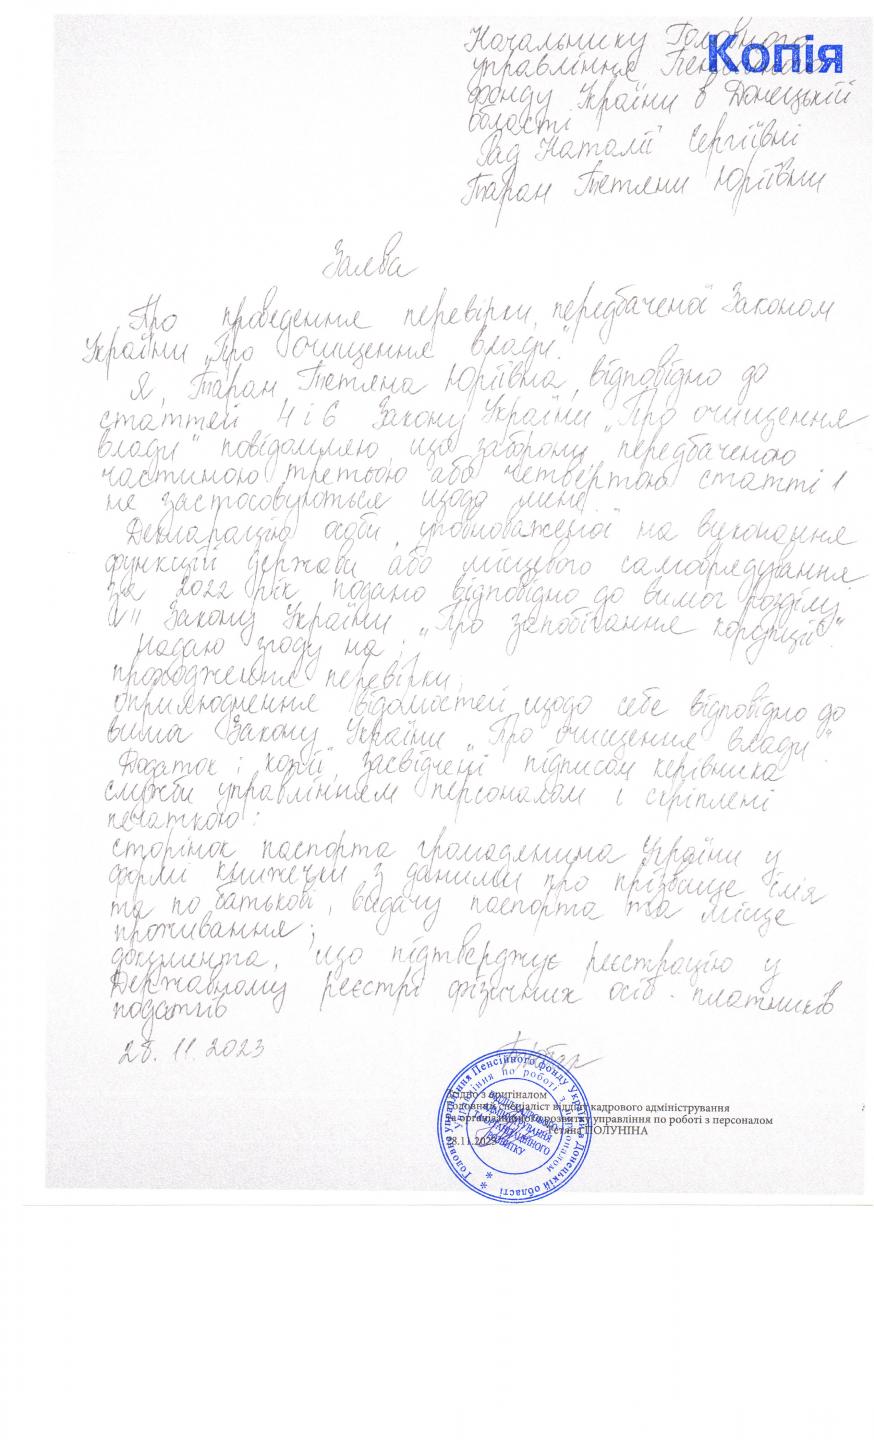 Копія
Начальнику Головного
управління Пенсійного
фонду України в Донецькій
області
Рад Наталії Сергіївні
Таран Тетяни Юріївни
Заява
Про проведення перевірки, передбаченої Законом
України „Про очищення влади".
Я, Таран Тетяна Юріївна, відповідно до
статтей 4 і 6 Закону України „Про очищення
влади" повідомляю, що заборони, передбаченою
частиною третьою або четвертою статті 1
не застосовуються щодо мене
Декларацію особи, уповноваженої на виконання
функцій держави або місцевого самоврядування
за 2022 рік подано відповідно до вимог розділу
VII Закону України „Про запобігання корупції".
Надаю згоду на:
проходження перевірки;
оприлюднення відомостей щодо себе відповідно до
вимог Закону України „Про очищення влади".
Додаток: копії, засвідчені підписом керівника
служби управлінням персоналом і скріплені
печаткою:
сторінок паспорта громадянина України у
формі книжечки з даними про прізвище ім'я
та по батькові, видачу паспорта та місце
проживання;
документа, що підтверджує реєстрацію у
Державному реєстрі фізичних осіб - платників
податків
28.11.2023
Згідно з оригіналом
Головний спеціаліст відділу кадрового адміністрування
та організаційного розвитку управління по роботі з персоналом
Тетяна ПОЛУНІНА
28.11.2023
Головне управління Пенсійного фонду України в Донецькій області
Управління по роботі з персоналом
ВІДДІЛ КАДРОВОГО
АДМІНІСТРУВАННЯ
ТА ОРГАНІЗАЦІЙНОГО
РОЗВИТКУ